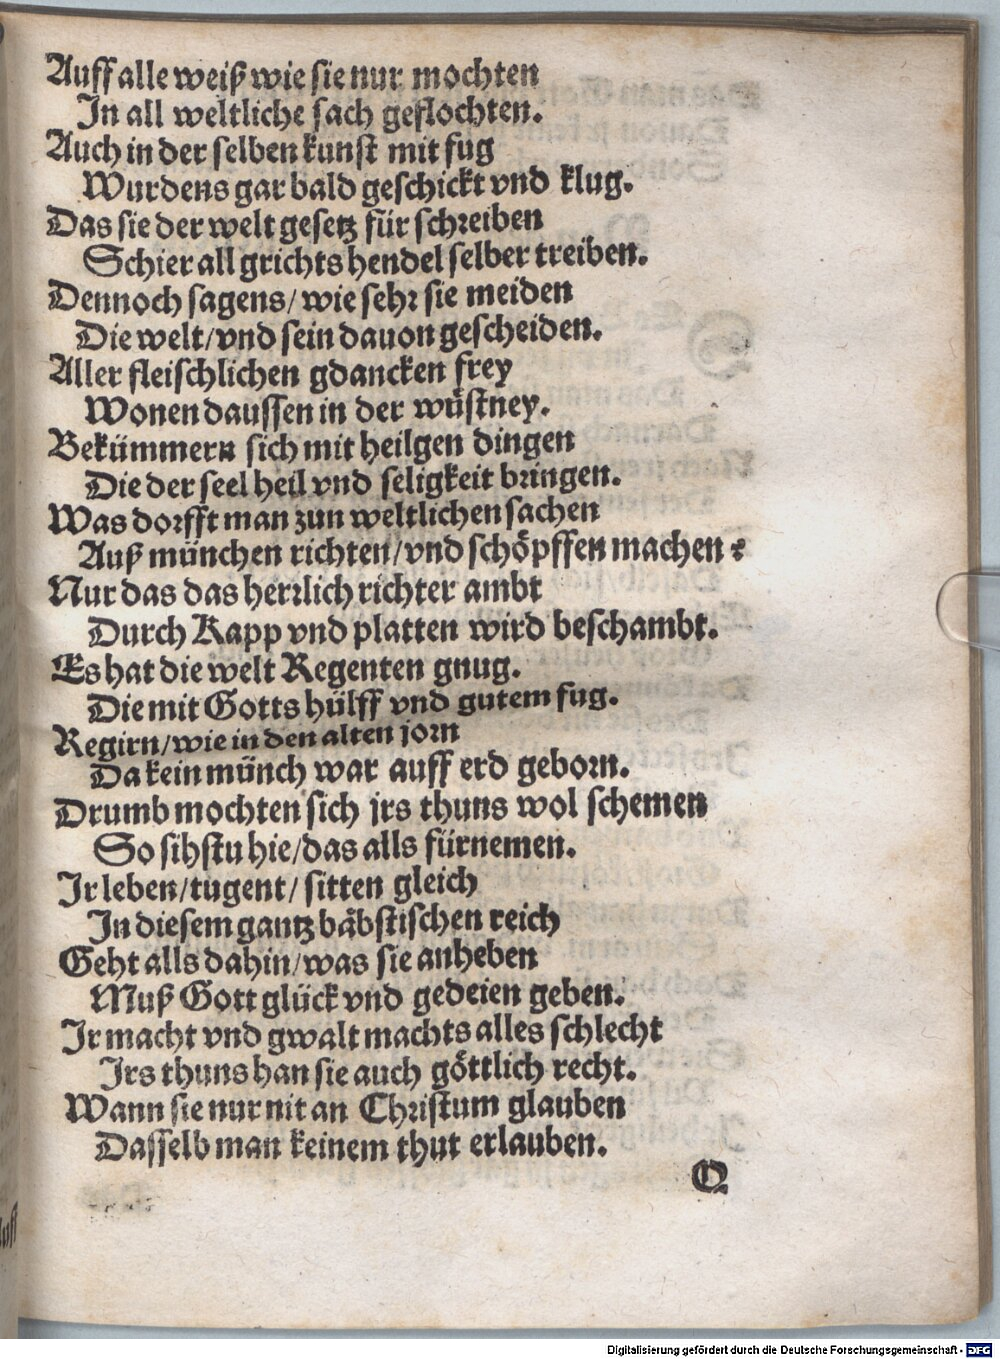 Auff alle weiß wie sie nur mochten
In all weltliche sach geflochten.
Auch in der selben kunst mit fug
Wurdens gar bald geschickt vnd klug.
Das sie der welt gesetz für schreiben
Schier all grichts hendel selber treiben.
Dennoch sagens/ wie sehr sie meiden
Die welt/ vnd sein dauon gescheiden.
Aller fleischlichen gdancken frey
Wonen daussen in der wüstney.
Bekümmern sich mit heilgen dingen
Die der seel heil vnd seligkeit bringen.
Was dorfft man zun weltlichen sachen
Auß münchen richten/ vnd schöpffen machen?
Nur das das herrlich richter ambt
Durch Kapp vnd platten wird beschambt.
Es hat die welt Regenten gnug.
Die mit Gotts hülff vnd gutem fug.
Regirn/ wie in den alten jorn
Da kein münch war auff erd geborn.
Drumb mochten sich jrs thuns wol schemen
So sihstu hie/ das alls fürnemen.
Ir leben/ tugent/ sitten gleich
In diesem gantz bäbstischen reich
Geht alls dahin/ was sie anheben
Muß Gott glück vnd gedeien geben.
Ir macht vnd gwalt machts alles schlecht
Irs thuns han sie auch göttlich recht.
Wann sie nur nit an Christum glauben
Dasselb man keinem thut erlauben.
Q
Digitalisierung gefördert durch die Deutsche Forschungsgemeinschaft - DFG